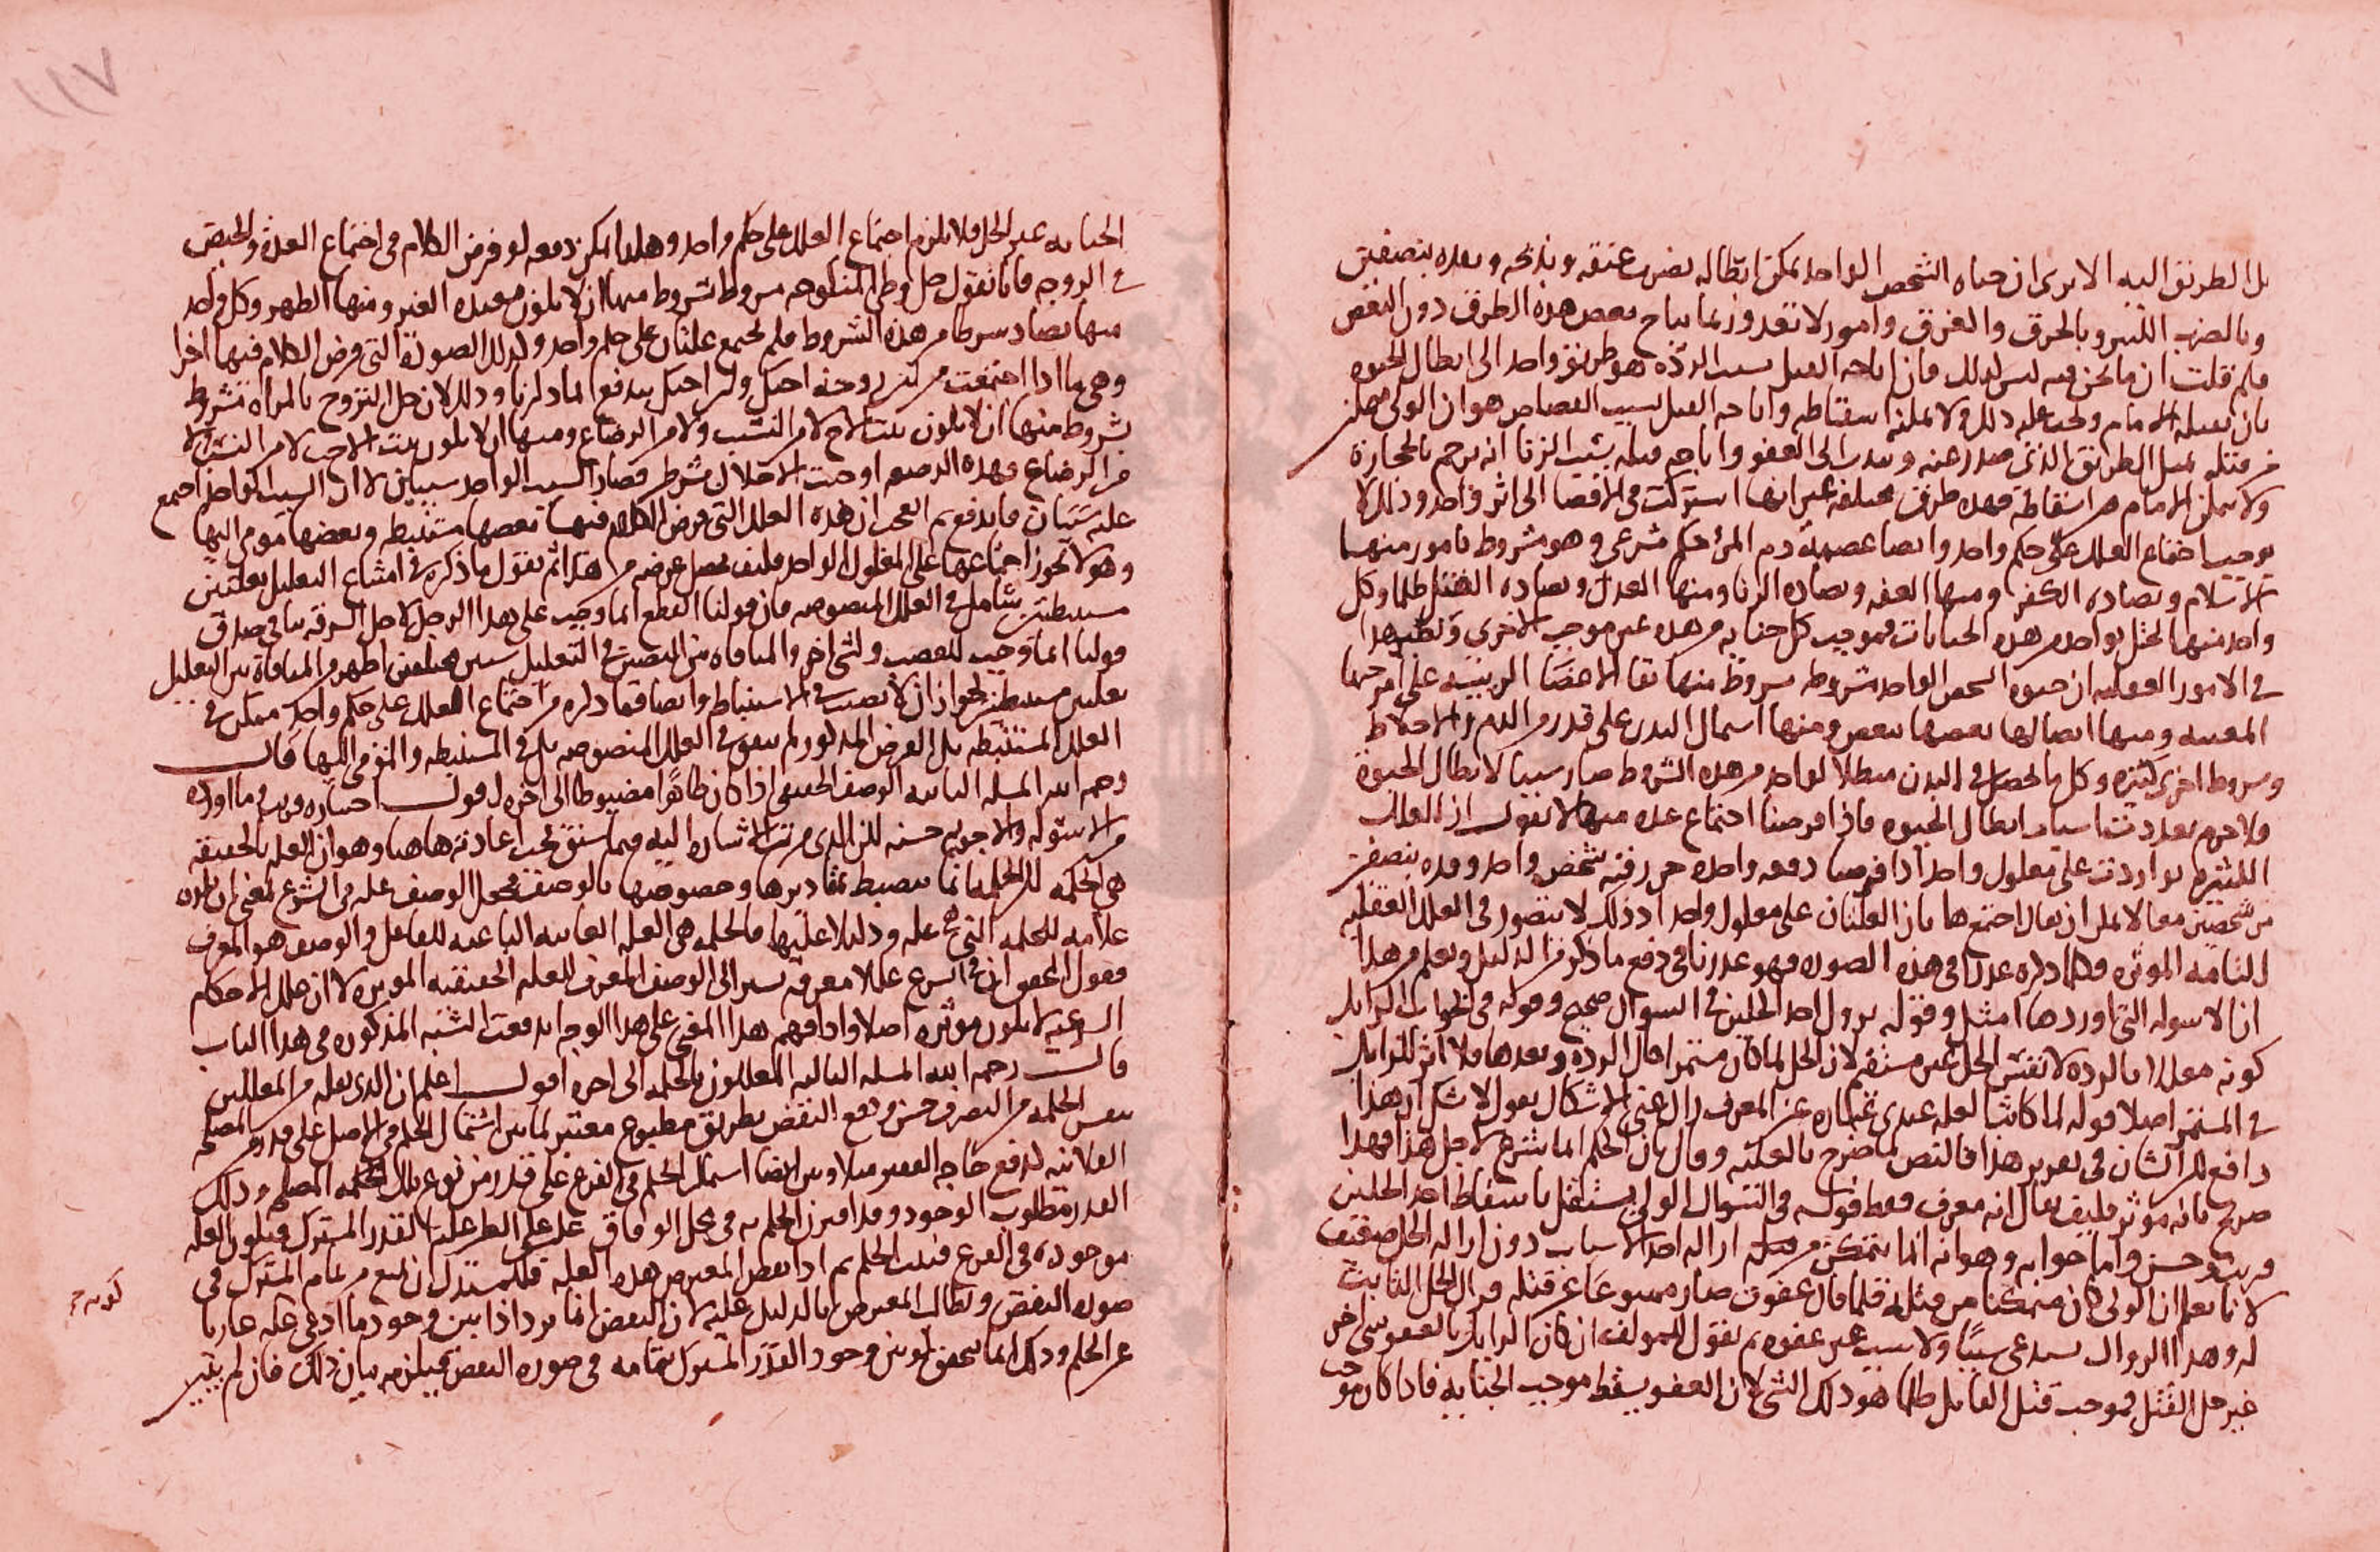 بل الطريق اليه الا يرى ان حياه الشخص الواحد يمكن ابطاله بضرب عنقه وبذبحه وبقده بنصفين
وبالضرب الكبير وبالحرق والغرق وامور لا تعد وربما يباح بعض هذه الطرق دون البعض
فلم قلت ان ما نحن فيه ليس كذلك فان اباحه القتل بسبب الردّه هو طريق واحد الى ابطال الحيوه
بان يقتله الامام ويجب عليه ذلك ولا يمكنه اسقاطه واباحه القتل بسبب القصاص هو ان الولى يتمكن
من قتله بمثل الطريق الذى صدر عنه ويندب الى العفو واباحه قتله بسبب الزنا انه يرجم بالحجارة
ولا يمكن الامام من اسقاطه فهذه طرق مختلفه غير انها اشتركت فى الافضا الى اثر واحد وذلك لا
يوجب اجتماع العلل على حكم واحد وايضا عصمة دم المرء حكم شرعى وهو مشروط بامور منها
الاسلام ويضاده الكفر ومنها العفه ويضاده الزنا ومنها العدل ويضاده القتل ظلما وكل
واحد منها يختل بواحد من هذه الجنايات فموجب كل جنايه من هذه غير موجب الاخرى ونظير هذا
فى الامور العقليه ان حيوه الشخص الواحد مشروطه بشروط منها بقا الاعضا الرييسه على امزجتها
المعينه ومنها اتصالها بعضها ببعض ومنها اشتمال البدن على قدر من الدم والاخلاط
وشروط اخرى كثيره وكل ما يحصل فى البدن مبطلا لواحد من هذه الشروط صار سببا لابطال الحيوة
فلا جرم تعددت اسباب ابطال الحيوه فاذا فرضنا اجتماع عده منها لا نقول ان العلل
الكثيره تواردت على معلول واحد اذا فرضنا دفعه واحده حز رقبه شخص واحد وقده بنصفين
من شخصين معا لا يمكن ان يقال اجتمع هاتان العلتان على معلول واحد اذ ذلك لا يتصور فى العلل العقليه
التامه الموثره فكلما ذكره عذرا فى هذه الصوره فهو عذرنا فى دفع ما ذكر من الدليل ويعلم من هذا
ان الاسوله التى اوردها امثل وقوله يزول احد الحلين فى السوال صحيح وقوله فى الجواب الزايل
كونه معللا بالرده لا نفس الحل غير مستقيم لان الحل لما كان مستمرا حال الردة وبعدها فلا اثر للزايل
فى المستمر اصلا قوله لما كانت العله عندى عباره عن المعرف زال عنى الاشكال نقول لا شك ان هذا
دافع للاشكال فى تقرير هذا فالنص لما صرح بالعليه وقال بان الحكم انما شرع لاجل هذا فهذا
صرح بانه موثر فكيف يقال انه معرف فقط قوله فى السوال الولى يستقل باسقاط احد الحلين
قريب وحسن واما جوابه وهو انه انما يتمكن من ازاله احد الاسباب دون ازاله الحل ضعيف
لانا نعلم ان الولى كان متمكنا من قتله فلما قال عفوت صار ممنوعا عن قتله فزال الحل الثابت
له وهذا الزوال يستدعى سببًا ولا سبب غير عفوه ثم نقول للمولف ان كان الزايل بالعفو شى اخر
غير حل القتل فموجب قتل القاتل ظلما هو ذلك الشى لان العفو يسقط موجب الجنايه فاذا كان موجب
الجنايه غير الحل فلا يلزم اجتماع العلل على حكم واحد وهكذا يمكن دفعه لو فرض الكلام فى اجتماع العدة والحيض
فى الزوجه فانا نقول حل وطى المنكوحه مشروط بشروط منها ان لا يكون معتده الغير ومنها الطهر وكل واحد
منها يضاد شرطا من هذه الشروط فلم يجتمع علتان على حكم واحد وكذلك الصورة التى فرض الكلام فيها اخرا
وهى ما اذا اجتمعت من لبن زوجه اخيك ولبن اختك يندفع بما ذكرنا وذلك لان حل التزوج بالمراه مشروط
بشروط منها ان لا يكون بنت الاخ لا من النسب ولا من الرضاع ومنها ان لا يكون بنت الاخت لا من النسب ولا
من الرضاع فهذه الرضعه اوجبت الاخلال بشرطين فصار السبب الواحد سببين لا ان السبب الواحد اجتمع
عليه سببان فاندفع ثم العجب ان هذه العلل التى فرض الكلام فيها بعضها مستنبطه وبعضها مومى اليها
وهو لا يجوز اجتماعها على المعلول الواحد فكيف يحصل غرضه من هذا ثم نقول ما ذكره فى امتناع التعليل بعلتين
مستنبطتين شامل فى العلل المنصوصه فان قولنا القطع انما وجب على هذا الرجل لاجل السرقه ينافى صدق
قولنا انما وجب للغصب ولشى اخر والمنافاه بين النصين فى التعليل بشيين مختلفين اظهر من المنافاة بين التعليل
بعلتين مستنبطتين لجواز ان لا نصيب فى الاستنباط وايضا فما ذكره من اجتماع العلل على حكم واحد ممكن فى
العلل المستنبطه بل الفرض المذكور لم يتفق فى العلل المنصوصه بل فى المستنبطه والمومى اليها قال
رحمه الله المسله الثانيه الوصف الحقيقى اذا كان ظاهرًا مضبوطا الى اخره اقول اختياره قريب وما اورده
من الاسوله والاجوبه حسنه لكن الذى مرت الاشاره اليه فيما سبق يجب اعادته هاهنا وهو ان العله بالحقيقه
هى الحكمه لكن الحكمه انما ينضبط مقاديرها وخصوصها بالوصف فجعل الوصف عله فى الشرع بمعنى ان كونه
علامه للحكمه التى هى عله ودليلا عليها فالحكمه هى العله الغاييه الباعثه للفاعل والوصف هو المعرف
فقول المحققين فى الشرع عللا معرفه يشير الى الوصف المعرف للعله الحقيقيه الموثره لا ان علل الاحكام
الشرعيه لا يكون موثره اصلا واذا فهم هذا المعنى على هذا الوجه اندفعت الشبه المذكوره فى هذا الباب
قال رحمه الله المسله الثالثه المعللون بالحكمه الى اخره اقول اعلم ان الذى نقله من المعللين
بنفس الحكمه من التصرف حسن ودفع النقض بطريق مطبوع معتبر لما بين اشتمال الحكم فى الاصل على قدر من المصلحه
الفلانيه لدفع حاجه الفقير مثلا وبين ايضا اشتمال الحكم فى الفرع على قدر من نوع تلك الحكمه المصلحه وذلك
القدر مطلوب الوجود وقد اقترن الحكم به فى محل الوفاق غلب على الظن عليه القدر المشترك فيكون العله
موجوده فى الفرع فيثبت الحكم ثم اذا نقض المعترض هذه العله فللمستدل ان يمنع من تمام المشترك فى
صوره النقض ويطالب المعترض بالدليل عليه لان النقض انما يرد اذا بين وجود ما ادعى عله عاريا
عن الحكم وذلك انما يتحقق لو بين وجود القدر المشترك بتمامه فى صوره النقض فيلزمه بيان ذلك فان لم يتبين
كونه
١١٧